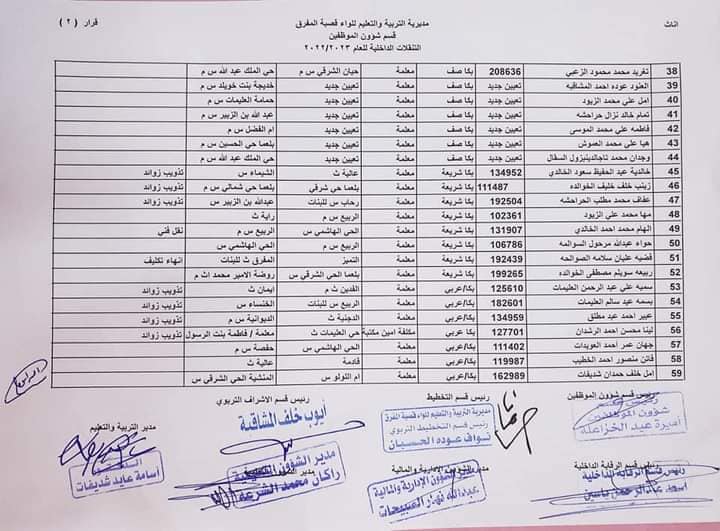 اناث
مديرية التربية والتعليم للواء قصبة المفرق
قرار ( ٢ )
قسم شؤون الموظفين
التنقلات الداخلية للعام ٢٠٢٢/٢٠٢٣
38 تغريد محمد محمود الزعبي 208636 بكا صف معلمة حيان الشرقي س م حي الملك عبد الله س م
39 العنود عوده احمد المشاقبه تعيين جديد بكا صف معلمة تعيين جديد خديجة بنت خويلد س م
40 امل علي محمد الزيود تعيين جديد بكا صف معلمة تعيين جديد حمامة العليمات س م
41 تمام خالد نزال حراحشه تعيين جديد بكا صف معلمة تعيين جديد عبد الله بن الزبير س م
42 فاطمه علي محمد الموسى تعيين جديد بكا صف معلمة تعيين جديد ام الفضل س م
43 هيا علي محمد العموش تعيين جديد بكا صف معلمة تعيين جديد بلعما حي الحسين س م
44 وجدان محمد تاجالدينبزول السقال تعيين جديد بكا صف معلمة تعيين جديد حي الملك عبد الله س م
45 خالدية عبد الحفيظ سعود الخالدي 134952 بكا شريعة معلمة عالية ث الشيماء س م تذويب زوائد
46 زينب خلف خليف الخوالده 111487 بكا شريعة معلمة بلعما حي شرقي بلعما حي شمالي س م تذويب زوائد
47 عفاف محمد مطلب الحراحشه 192504 بكا شريعة معلمة رحاب س للبنات عبدالله بن الزبير س تذويب زوائد
48 مها محمد علي الزيود 102361 بكا شريعة معلمة الربيع س م راية ث
49 الهام محمد احمد الخالدي 131907 بكا شريعة معلمة الحي الهاشمي س م الربيع س م نقل فني
50 حواء عبدالله مرحول السوالمه 106786 بكا شريعة معلمة الربيع س م الحي الهاشمي س م
51 فضيه عليان سلامه الصوالحه 192439 بكا شريعة معلمة التميز المفرق ث للبنات انهاء تكليف
52 ربيعه سويلم مصطفى الخوالده 199265 بكا شريعة معلمة بلعما الحي الشرقي س م روضة الامير محمد اث م
53 سميه علي عبد الرحمن العليمات 125610 بكا/عربي معلمة الفدين ث م ايمان ث تذويب زوائد
54 بسمه عبد سالم العليمات 182601 بكا/عربي معلمة الربيع س للبنات الخنساء س م تذويب زوائد
55 عبير احمد عبد مطلق 134959 بكا/عربي معلمة الدجنية ث الديوانية س م تذويب زوائد
56 لينا محسن احمد الرشدان 127701 بكا عربي مكلفة امين مكتبة حي العليمات ث معلمة / فاطمة بنت الرسول تذويب زوائد
57 جهان عمر احمد العويدات 111402 بكا عربي معلمة الحي الهاشمي س م حفصة س م
58 فاتن منصور احمد الخطيب 119987 بكا عربي معلمة فادمة عالية ث
59 امل خلف حمدان شديفات 162989 بكا/عربي معلمة ام اللولو س م المنشية الحي الشرقي س م
رئيس قسم شؤون الموظفين
رئيس قسم التخطيط
رئيس قسم الاشراف التربوي
مدير التربية والتعليم
رئيس قسم
شؤون الموظفين
اميرة عبد الخزاعلة
مديرية التربية والتعليم للواء قصبة المفرق
رئيس قسم التخطيط التربوي
نواف عوده الحسبان
أيوب خلف المشاقبة
الدكتور
اسامة عايد شديفات
رئيس قسم الرقابة الداخلية
مدير الشؤون الادارية والمالية
رئيس قسم الرقابة الداخلية
اسعد عبدالرحمن ياسين
مدير الشؤون الإدارية والمالية
عبدالله نهار الصبيحات
مدير الشؤون التعليمية
راكان محمد الشرعة